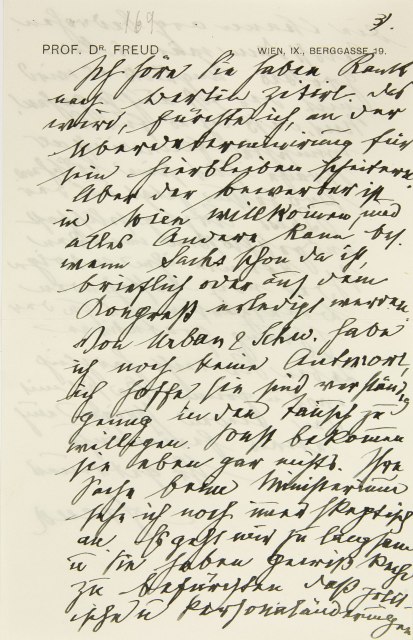 169
3).
PROF. DR. FREUD
WIEN, IX., BERGGASSE 19.
Ich höre Sie haben Rank
nach Berlin zitirt. Das
wird, fürchte ich, an der
Überdeterminirung für
sein Hierbleiben scheitern.
Aber der Bewerber ist
in Wien willkommen und
alles Andere kann, bes.
wenn Sachs schon da ist,
brieflich oder auf dem
Kongreß erledigt werden.
Von Urban & Schw. habe
ich noch keine Antwort,
ich hoffe sie sind verständig
genug in den Tausch zu
willigen. Sonst bekommen
sie eben gar nichts. Ihre
Sache beim Ministerium
sehe ich noch immer skeptisch
an. Es geht mir zu langsam
u Sie haben gewiß Recht
zu befürchten daß
u Personaländerungen